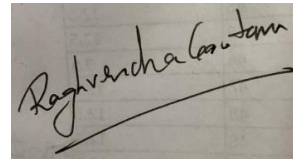 Raghvendra Gautam